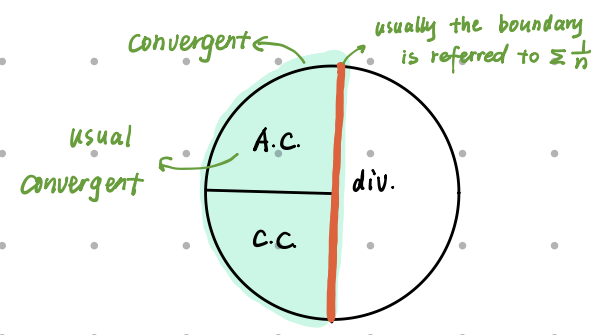 convergent
usually the boundary
is referred to Σ 1/n
A.C.
usual
convergent
div.
C.C.